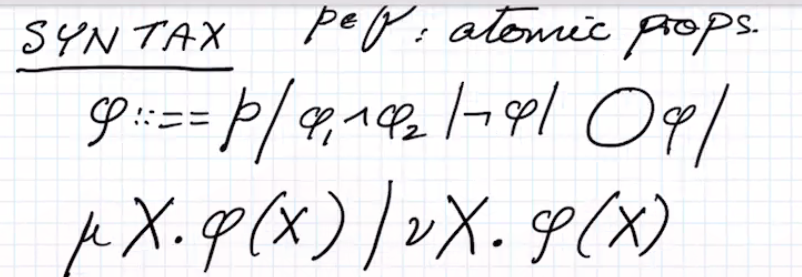 SYNTAX p∈P: atomic props.
φ ::== p | φ₁ ∧ φ₂ | ¬φ | ◯φ |
μX.φ(X) | νX.φ(X)